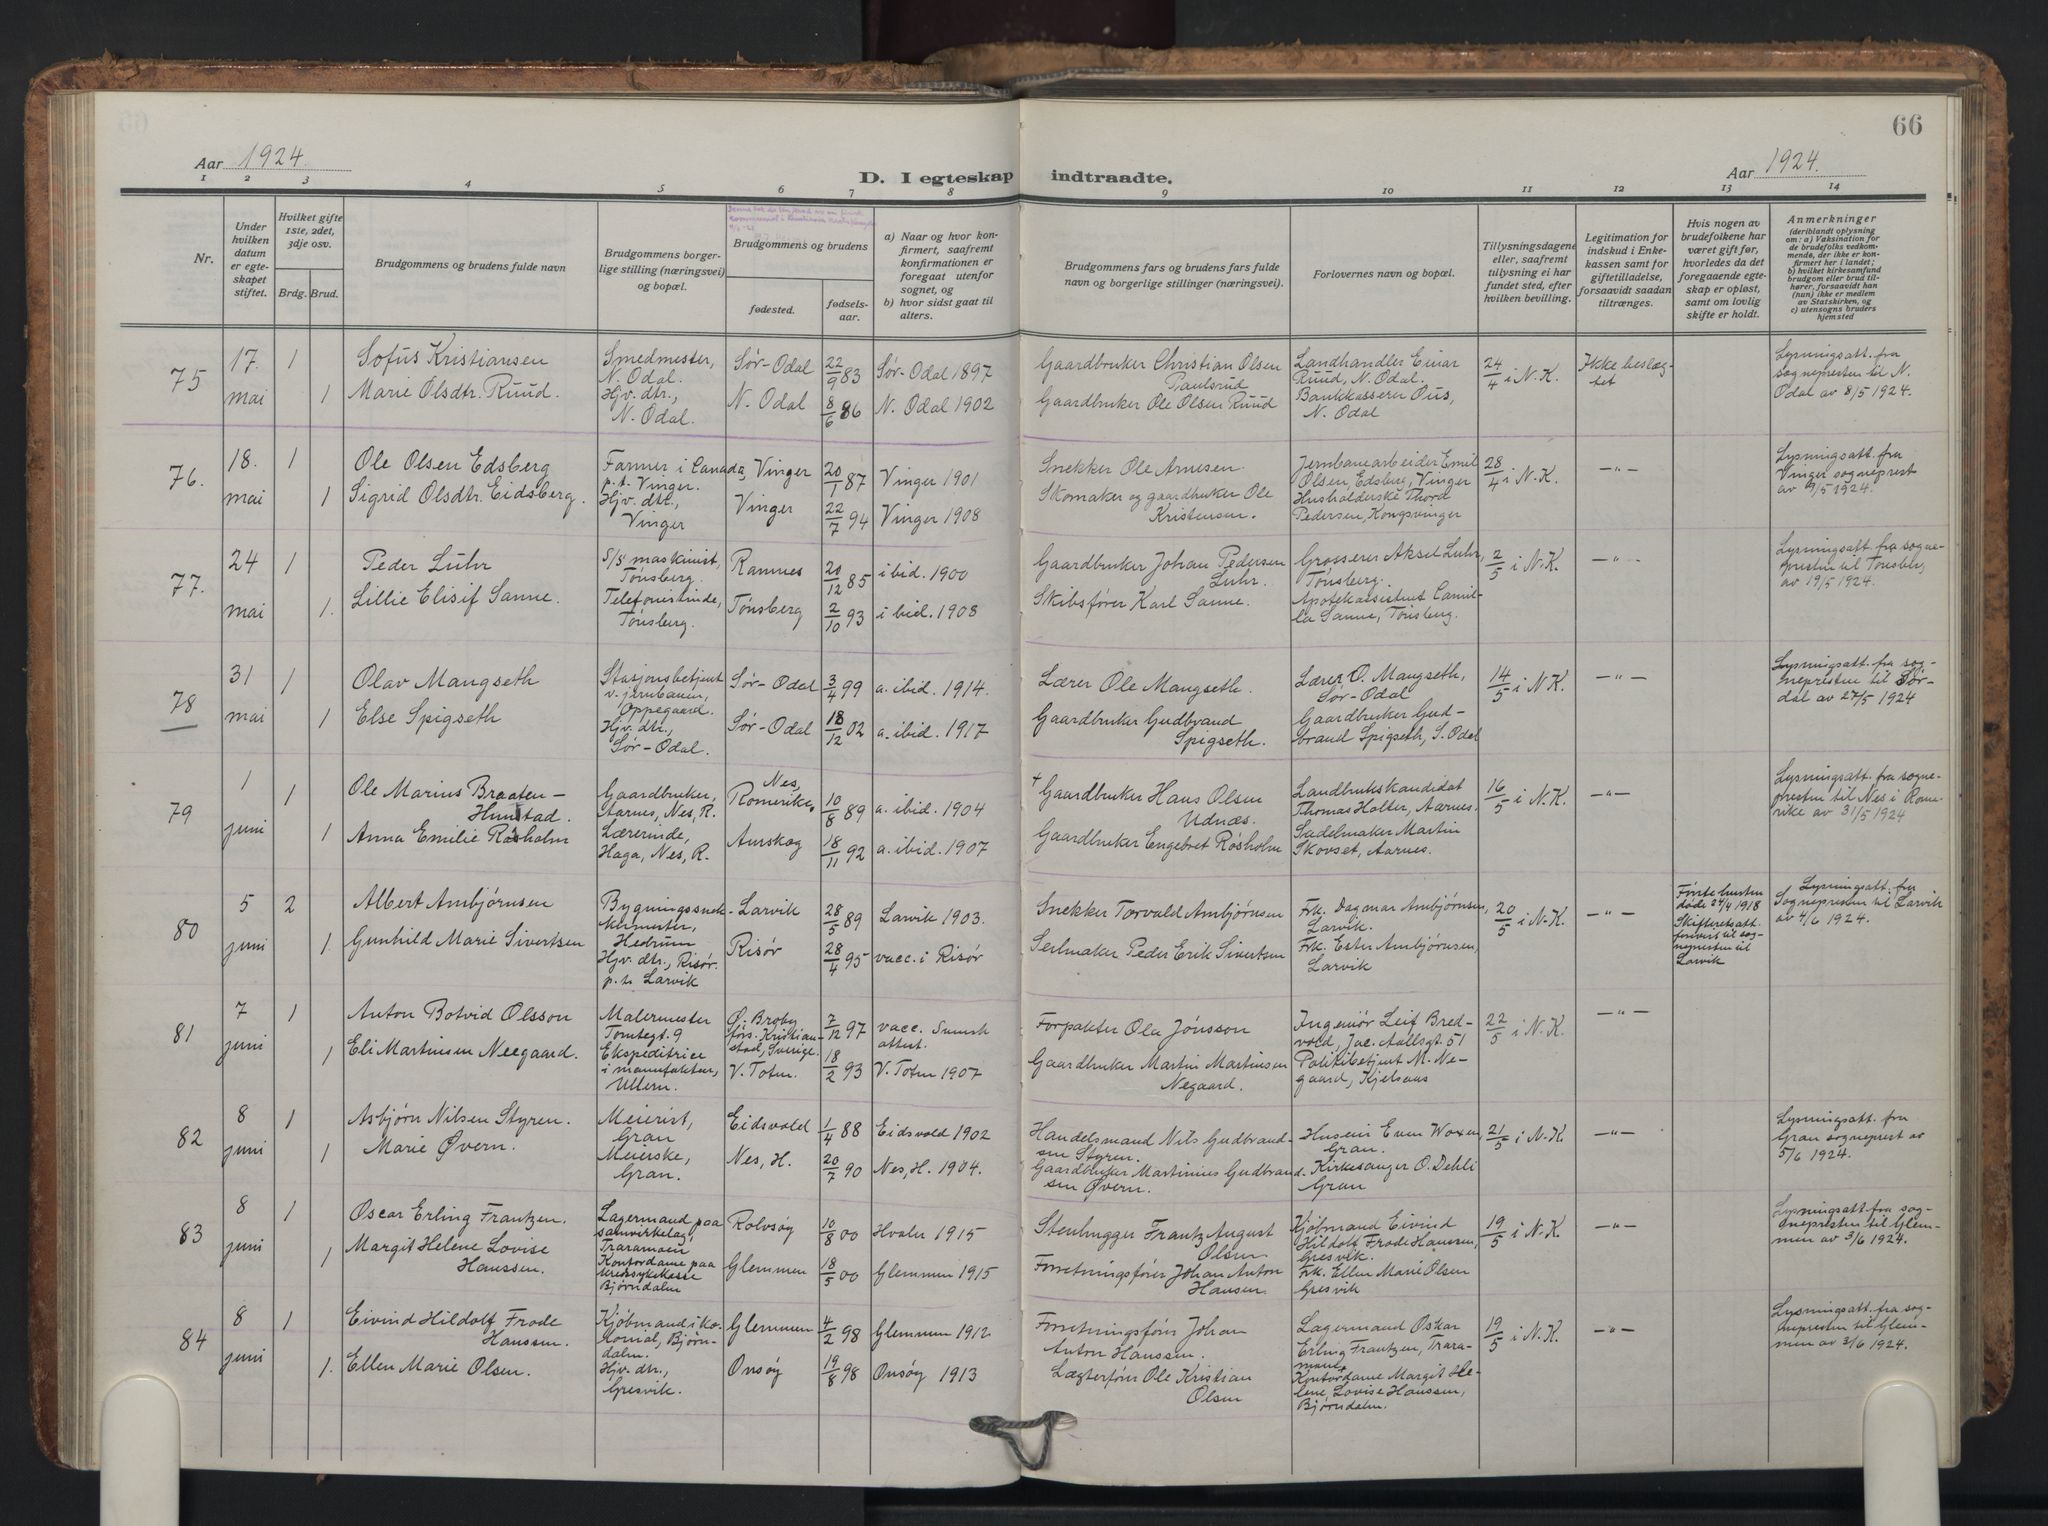 66
Aar 1924.
D. I egteskap indtraadte.
Aar 1924.
1 2 3 4 5 6 7 8 9 10 11 12 13 14
Nr.
Under hvilken datum er egteskapet stiftet.
Hvilket gifte 1ste, 2det, 3dje osv.
Brdg. Brud.
Brudgommens og brudens fulde navn
Brudgommens borgerlige stilling (næringsvei) og bopæl.
Brudgommens og brudens
fødested.
fødselsaar.
a) Naar og hvor konfirmert, saafremt konfirmationen er foregaat utenfor sognet, og
b) hvor sidst gaat til alters.
Brudgommens fars og brudens fars fulde navn og borgerlige stillinger (næringsvei).
Forlovernes navn og bopæl.
Tillysningsdagene eller, saafremt tillysning ei har fundet sted, efter hvilken bevilling.
Legitimation for indskud i Enkekassen samt for giftetilladelse, forsaavidt saadan tiltrænges.
Hvis nogen av brudefolkene har været gift før, hvorledes da det foregaaende egteskap er opløst, samt om lovlig skifte er holdt.
Anmerkninger (deriblandt oplysning om: a) Vaksination for de brudefolks vedkommende, der ikke er konfirmert her i landet; b) hvilket kirkesamfund brudgom eller brud tilhører, forsaavidt han (hun) ikke er medlem av Statskirken, og c) utensogns bruders hjemsted
75
17. mai
1
Sofus Kristiansen
Smedmester, N. Odal.
Sør-Odal
22/9 83
Sør-Odal 1897
Gaardbruker Christian Olsen Paulsrud
Landhandler Einar Ruud, N. Odal.
24/4 i N.K.
Ikke beslægtet
Lysningsatt. fra sognepresten til N. Odal av 8/5 1924.
1
Marie Olsdtr. Ruud.
Hjv. dtr., N. Odal.
N. Odal
8/6 86
N. Odal 1902
Gaardbruker Ole Olsen Ruud
Bankkasserer Ous, N. Odal
76.
18. mai
1
Ole Olsen Edsberg
Farmer i Canada, p.t. Vinger.
Vinger
20/1 87
Vinger 1901
Snekker Ole Arnesen.
Jernbanearbeider Emil Olsen, Edsberg, Vinger
28/4 i N.K.
—"—
Lysningsatt. fra Vinger sogneprest av 9/5 1924.
1
Sigrid Olsdtr. Eidsberg.
Hjv. dtr., Vinger
Vinger
22/7 94
Vinger 1908
Skomaker og gaardbruker Ole Kristensen.
Husholderske Thord Pedersen, Kongsvinger
77.
24 mai
1
Peder Luhr
S/S maskinist, Tønsberg.
Ramnes
20/12 85
ibid. 1900
Gaardbruker Johan Pedersen Luhr.
Grosserer Aksel Luhr, Tønsberg.
2/5 i N.K.
—"—
Lysningsatt. fra sognepresten til Tønsberg av 19/5 1924.
1.
Lillie Elisif Sanne.
Telefonistinde, Tønsberg.
Tønsberg
2/10 93
ibid. 1908
Skibsfører Karl Sanne.
Apotekassistent Camilla Sanne, Tønsberg.
78
31 mai
1
Olav Mangseth
Stasjonsbetjent v. jernbanen, Oppegaard.
Sør-Odal
3/4 99
a. ibid. 1914.
Lærer Ole Mangseth.
Lærer O. Mangseth, Sør-Odal
14/5 i N.K.
—"—
Lysningsatt. fra sognepresten til Sørdal av 27/5 1924
1
Else Spigseth
Hjv. dtr., Sør-Odal.
Sør-Odal
18/12 02
a. ibid. 1917
Gaardbruker Gudbrand Spigseth.
Gaardbruker Gudbrand Spigseth, S. Odal
79
1 juni
1
Ole Marius Braaten-Hunstad.
Gaardbruker, Aarnes, Nes, R.
Nes, Romerike
10/8 89
a. ibid. 1904
† Gaardbruker Hans Olsen Udnæs.
Landbrukskandidat Thomas Holter, Aarnes.
16/5 i N.K.
—"—
Lysningsatt. fra sognepresten til Nes i Romerike av 31/5 1924
1
Anna Emilie Røsholm
Lærerinde, Haga, Nes, R.
Aurskog
18/11 92
a. ibid. 1907
Gaardbruker Engebret Røsholm
Sadelmaker Martin Skovset, Aarnes.
80
5 juni
2
Albert Ambjørnsen
Bygningssnekkermester, Hedrum
Larvik
28/5 89
Larvik 1903.
Snekker Torvald Ambjørnsen
Frk. Dagmar Ambjørnsen, Larvik.
20/5 i N.K.
—"—
Første hustru døde 24/4 1918 Skifteretsatt. forevist til sognepresten til Larvik
Lysningsatt. fra Sognepresten til Larvik av 4/6 1924.
1.
Gunhild Marie Sivertsen
Hjv. dtr., Risør. p.t. Larvik
Risør
28/4 95
vacc. i Risør
Seilmaker Peder Erik Sivertsen
Frk. Ester Ambjørnsen, Larvik
81
7 juni
1
Anton Botvid Olsson
Malermester Tomtegt. 9
Ø. Broby förs. Kristianstad, Sverige.
7/12 97
vacc. Svensk attest.
Forpakter Ola Jönsson
Ingeniør Leif Bredvold, Jac. Aallsgt. 51
22/5 i N.K.
—"—
1
Eli Martinsen Neegaard.
Ekspeditrice i manufaktur, Ullern.
V. Toten.
18/2 93
V. Toten 1907
Gaardbruker Martin Martinsen Negaard.
Politibetjent M. Negaard, Kjelsaas
82
8 juni
1
Asbjørn Nilsen Styren.
Meierist, Gran
Eidsvold
1/4 88
Eidsvold 1902
Handelsmand Nils Gudbrandsen Styren.
Husein Even Woxen, Gran.
21/5 i N.K
—"—
Lysningsatt. fra Gran sogneprest av 5/6 1924.
1
Marie Øvern.
Meierske, Gran.
Nes, H.
20/7 90
Nes, H. 1904.
Gaardbruker Martinius Gudbrandsen Øvern.
Kirkesanger O. Dehli Gran
83
8 juni
1
Oscar Erling Frantzen.
Lagermand paa samvirkelag, Traramoen
Rolvsøy
10/8 00
Hvaler 1915
Stenhugger Frantz August Olsen
Kjøbmand Eivind Hildolf Frode Hanssen, Gresvik.
19/5 i N.K
—"—
Lysningsatt. fra sognepresten til Glemmen av 3/6 1924.
1
Margit Helene Lovise Hanssen.
Kontordame paa Kredssykekasse Bjørndalen
Glemmen
18/5 00
Glemmen 1915
Forretningsfører Johan Anton Hansen.
Frk. Ellen Marie Olsen Gresvik
84
8 juni
1
Eivind Hildolf Frode Hanssen.
Kjøbmand i kolonial, Bjørndalen.
Glemmen
4/2 98
Glemmen 1912
Forretningsfører Johan Anton Hanssen.
Lagermand Oskar Erling Frantzen, Traramoen
19/5 i N.K.
—"—
Lysningsatt. fra sognepresten til Glemmen av 3/6 1924.
1.
Ellen Marie Olsen.
Hjv. dtr., Gresvik.
Onsøy
19/8 98
Onsøy 1913
Lægterfører Ole Kristian Olsen
Kontordame Margit Helene Lovise Hanssen, Bjørndalen.